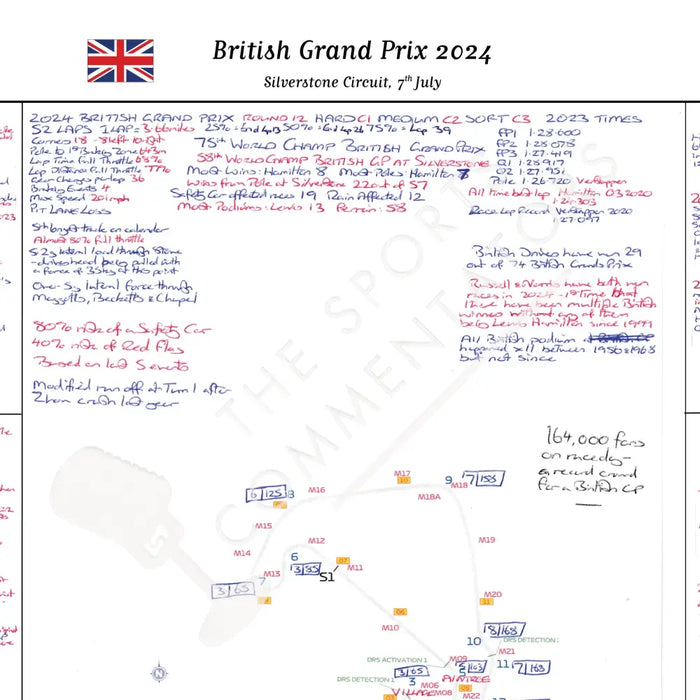 British Grand Prix 2024
Silverstone Circuit, 7th July
2024 BRITISH GRAND PRIX ROUND 12 HARD C1 MEDIUM C2 SOFT C3 2023 TIMES
52 LAPS 1 LAP = 3.6 minutes 25% = End Lap 13 50% = End Lap 26 75% = Lap 39
Corners 18 - 8 left 10 right
Pole to 1st Braking Zone
Lap Time Full Throttle
Lap Distance Full Throttle 77%
Gear Changes per Lap 36
Braking Events 4
Max Speed 201mph
PIT LANE LOSS
75th WORLD CHAMP BRITISH GRAND PRIX
58th WORLD CHAMP BRITISH GP AT SILVERSTONE
Most Wins: Hamilton 8 Most Poles: Hamilton 7
Wins from Pole at Silverstone 22 out of 57
Safety Car affected races 19 Rain Affected 12
Most Podiums: Lewis 13 Ferrari: 58
FP1 1.28.600
FP2 1.28.078
FP3 1.27.419
Q1 1.28.917
Q2 1.27.951
Pole 1.26.720 Verstappen
All time best lap Hamilton Q3 2020
1.24.303
Race Lap Record Verstappen 2020
1.27.097
5th longest track on calendar
Almost 80% full throttle
5.2g lateral load through Stowe
- drivers head being pulled with
a force of 35kg at this point
One-5g lateral force through
Maggotts, Becketts & Chapel
80% risk of a Safety Car
40% risk of Red Flag
Based on last 5 events
Modified run off at Turn 1 after
Zhou crash last year
British Drivers have won 29
out of 74 British Grands Prix
Russell & Norris have both won
races in 2024 - 1st time that
there have been multiple British
winners without any of them
being Lewis Hamilton since 1999
All British podium
happened between 1950 & 1968
but not since
164,000 fans
on raceday -
a record crowd
for a British GP
THE SPORTS
COMMENTATORS
M17
10
9
7/155
M18
6/125
8
M16
M18A
M15
M12
M19
M14
6
3/85
07
M11
S1
M13
3/65
M20
11
06
M10
8/168
10
DRS DETECTION
M21
DRS ACTIVATION 1
M09
11
7/163
3/65
5
DRS DETECTION 1
3
M06
AINTREE
VILLAGE
M08
M22
12